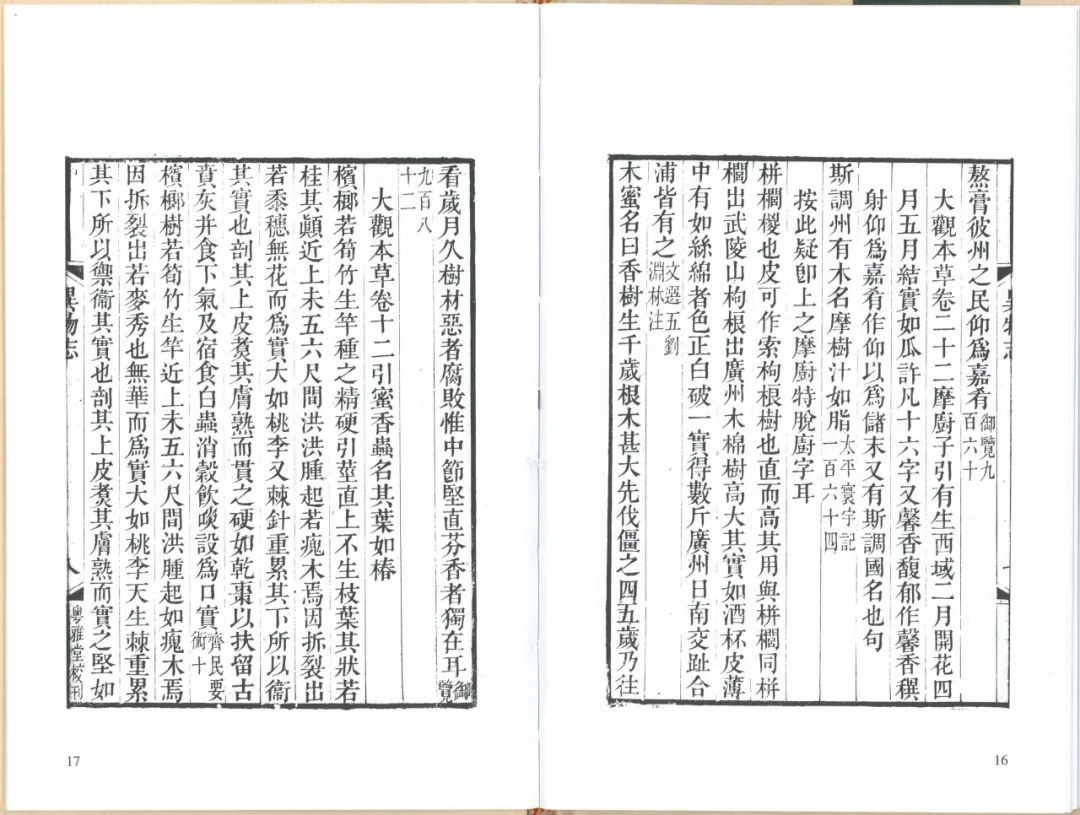 熬膏彼州之民仰爲嘉肴御覽九百六十
大觀本草卷二十二摩廚子引有生西域二月開花四
月五月結實如瓜許凡十六字又馨香馥郁作馨香穓
射仰爲嘉肴作仰以爲儲末又有斯調國名也句
斯調州有木名摩樹汁如脂太平寰宇記一百六十四
按此疑卽上之摩廚特脫廚字耳
栟櫚椶也皮可作索枸根樹也直而高其用與栟櫚同栟
櫚出武陵山枸根出廣州木棉樹高大其實如酒杯皮薄
中有如絲綿者色正白破一實得數斤廣州日南交趾合
浦皆有之文選五劉淵林注
木蜜名曰香樹生千歲根木甚大先伐僵之四五歲乃往
16
看歲月久樹材惡者腐敗惟中節堅直芬香者獨在耳御覽
九百八十二
大觀本草卷十二引蜜香蟲名其葉如椿
檳榔若筍竹生竿種之精硬引莖直上不生枝葉其狀若
桂其顚近上未五六尺間洪洪腫起若瘣木焉因拆裂出
若黍穗無花而爲實大如桃李又棘針重累其下所以衞
其實也剖其上皮煑其膚熟而貫之硬如乾棗以扶留古
賁灰并食下氣及宿食白蟲消穀飲啖設爲口實齊民要術十
檳榔樹若筍竹生竿近上未五六尺間洪腫起如瘣木焉
因拆裂出若麥秀也無華而爲實大如桃李天生棘重累
其下所以禦衞其實也剖其上皮煑其膚熟而實之堅如
異物志
八
粵雅堂校刊
17